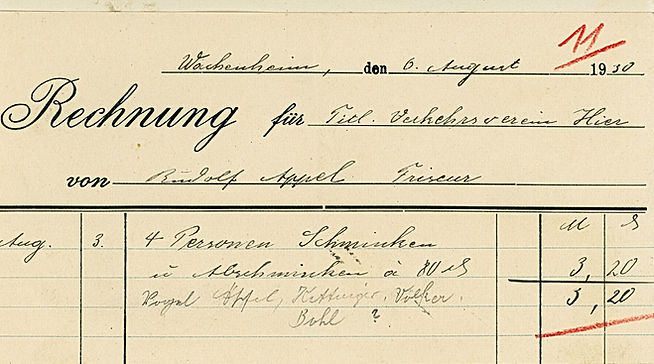 11
Wachenheim, den 6. August 1930
Rechnung für Titl. Verkehrsverein Hier
von Rudolf Appel Friseur
M S
Aug. 3. 4 Personen Schminken
u Abschminken à 80 S 3,20
Vogel Appel, Kettinger, Volker. 3,20
Bohl ?